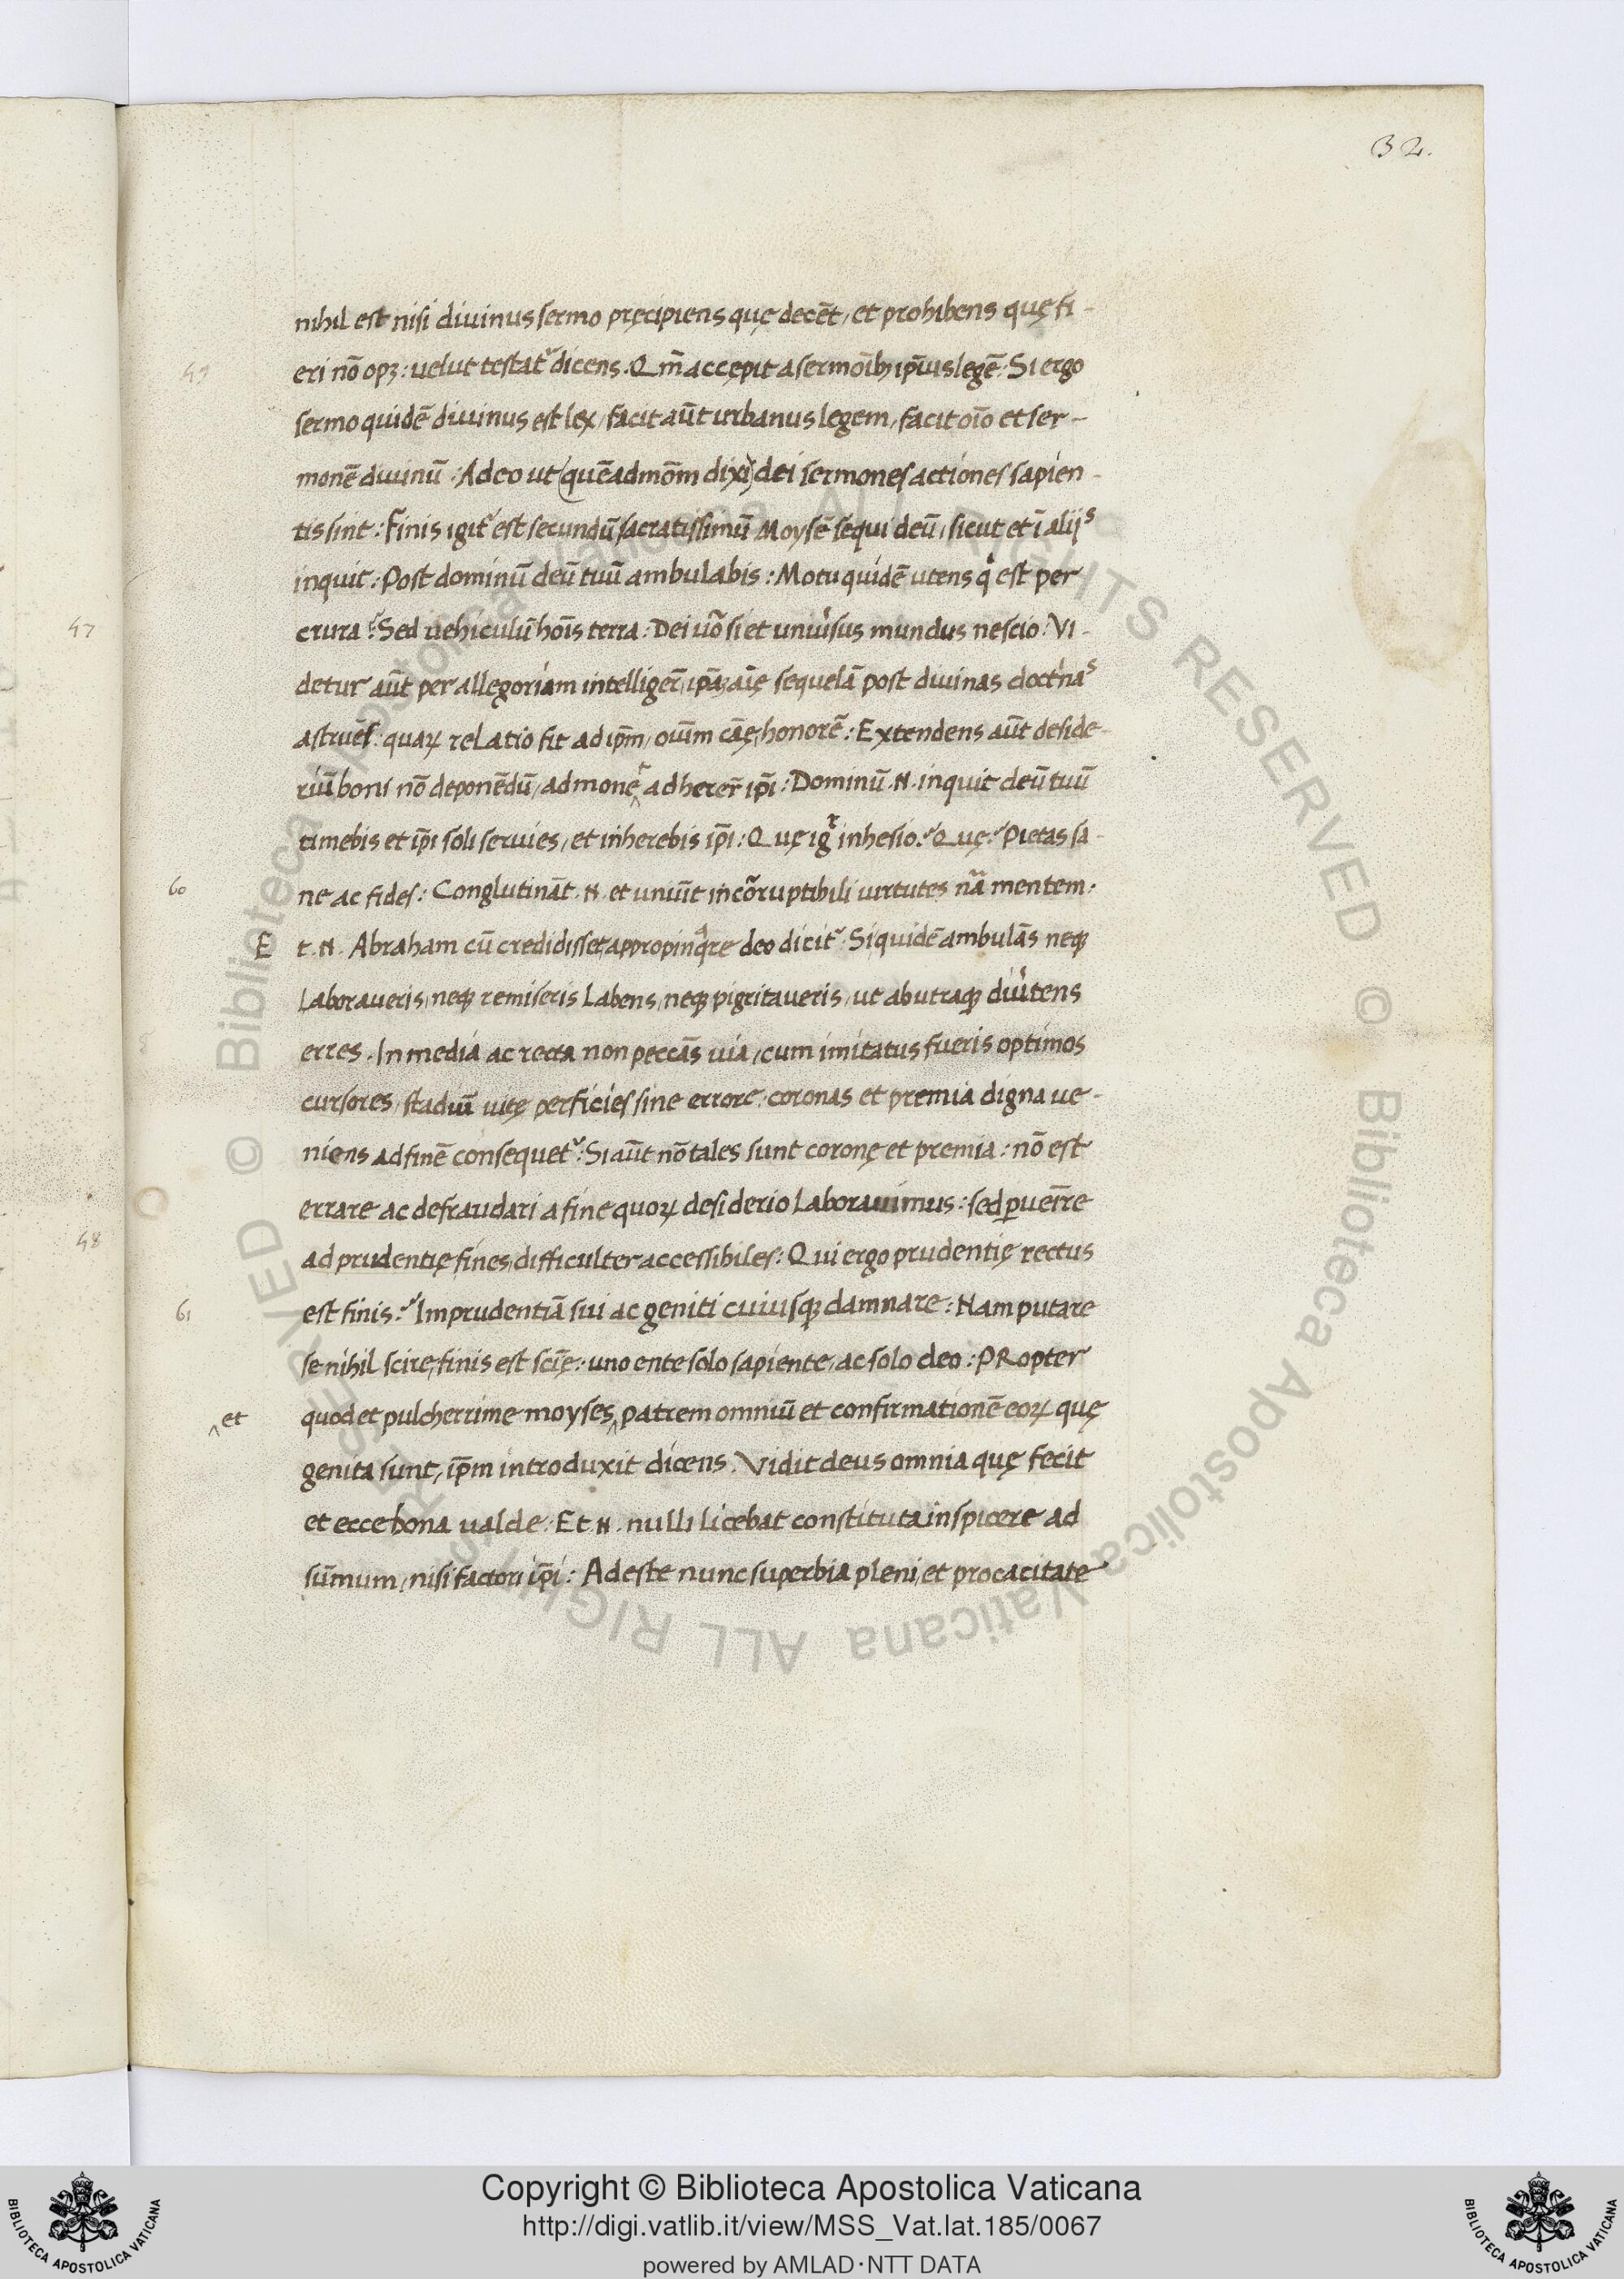 32.
nihil est nisi diuinus sermo pręcipiens quę decēt, et prohibens quę fi-
59
eri nō opꝫ: uelut testat᷑ dicens. Qm̄ accępit a sermoībꝫ ip̄ius legē: Si ergo
sermo quidē diuinus est lex, facit aūt urbanus legem, facit oīo et ser-
monē diuinū: Adeo ut (quēadmōm dixi) dei sermones actiones sapien-
tis sint: Finis igit᷑ est secundū sacratissimū Moysē sequi deū, sicut et ī alijs
inquit: Post dominū deū tuū ambulabis: Motu quidē utens qͥ est per
47
crura: Sed uehiculū hoīs terra: Dei uō si et uniu̓sus mundus nescio: Vi-
detur aūt per allegoriam intelliger̄, ip̄aꝫ aīę sequelā post diuinas doctͥnas
astruēs: quaꝝ relatio fit ad ip̄m, oūim cāę honorē: Extendens aūt deside-
riū boni nō deponēdū, admonęt adherer̄ ip̄i: Dominū .N. inquit deū tuū
timebis et ip̄i soli seruies, et inherebis ip̄i: Quę igr̄ inhesio? Quę? Pietas sa-
60
ne ac fides: Conglutināt .N. et uniūt incōruptibili uirtutes nr̄a mentem.
E t .N. Abraham cū credidisset, appropinqͣre deo dicit᷑: Siquidē ambulās neqꝫ
laboraueris, neqꝫ remiseris labens, neqꝫ pigritaueris, ut ab utraqꝫ diu̓tens
erres. In media ac recta non peccās uia, cum imitatus fueris optimos
cursores, stadiū uitę perficies sine errore, coronas et premia digna ue-
niens ad finē consequet᷑: Si aūt nō tales sunt coronę et premia: nō est
errare ac defraudari a fine quoꝝ desiderio laborauimus: sed ꝑueīre
48
ad prudentię fines, difficulter accessibiles: Qui ergo prudentię rectus
61
est finis? Imprudentiā sui ac geniti cuiusqꝫ damnare: Nam putare
se nihil scire, finis est scīę: uno ente solo sapiente, ac solo deo: PRopter
^et
quod et pulcherrime moyses ^ patrem omniū et confirmationē eoꝝ quę
genita sunt, ip̄m introduxit dicens. Vidit deus omnia quę fecit
et ecce bona ualde: Et .N. nulli licebat constituta inspicere ad
sūmum, nisi factori ip̄i: Adeste nunc superbia pleni, et procacitate
Copyright © Biblioteca Apostolica Vaticana
http://digi.vatlib.it/view/MSS_Vat.lat.185/0067
powered by AMLAD·NTT DATA
BIBLIOTECA APOSTOLICA VATICANA
BIBLIOTECA APOSTOLICA VATICANA
© Biblioteca Apostolica Vaticana ALL RIGHTS RESERVED © Biblioteca Apostolica Vaticana ALL RIGHTS RESERVED